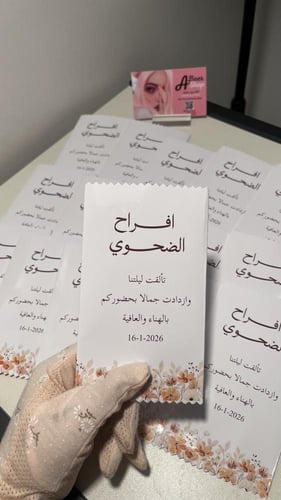 افراح
الضحوي
تألقت ليلتنا
وازدادت جمالا بحضوركم
بالهناء والعافية
16-1-2026